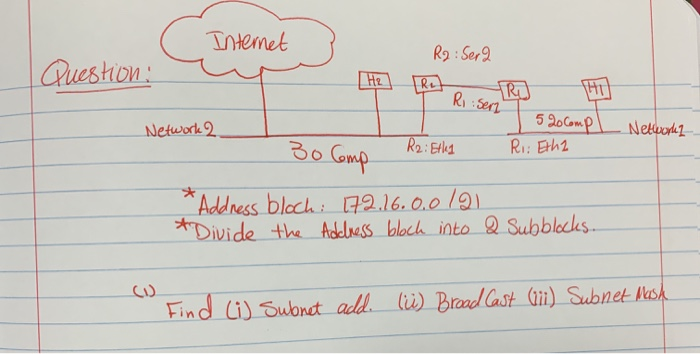 Internet
R2 : Ser2
Question:
H2
R2
R1
H1
R1 : Ser1
520 Comp
Network2
Network1
30 Comp
R2: Eth1
R1: Eth1
* Address block: 172.16.0.0/21
* Divide the Address block into 2 Subblocks.
(1)
Find (i) Subnet add. (ii) BroadCast (iii) Subnet Mask